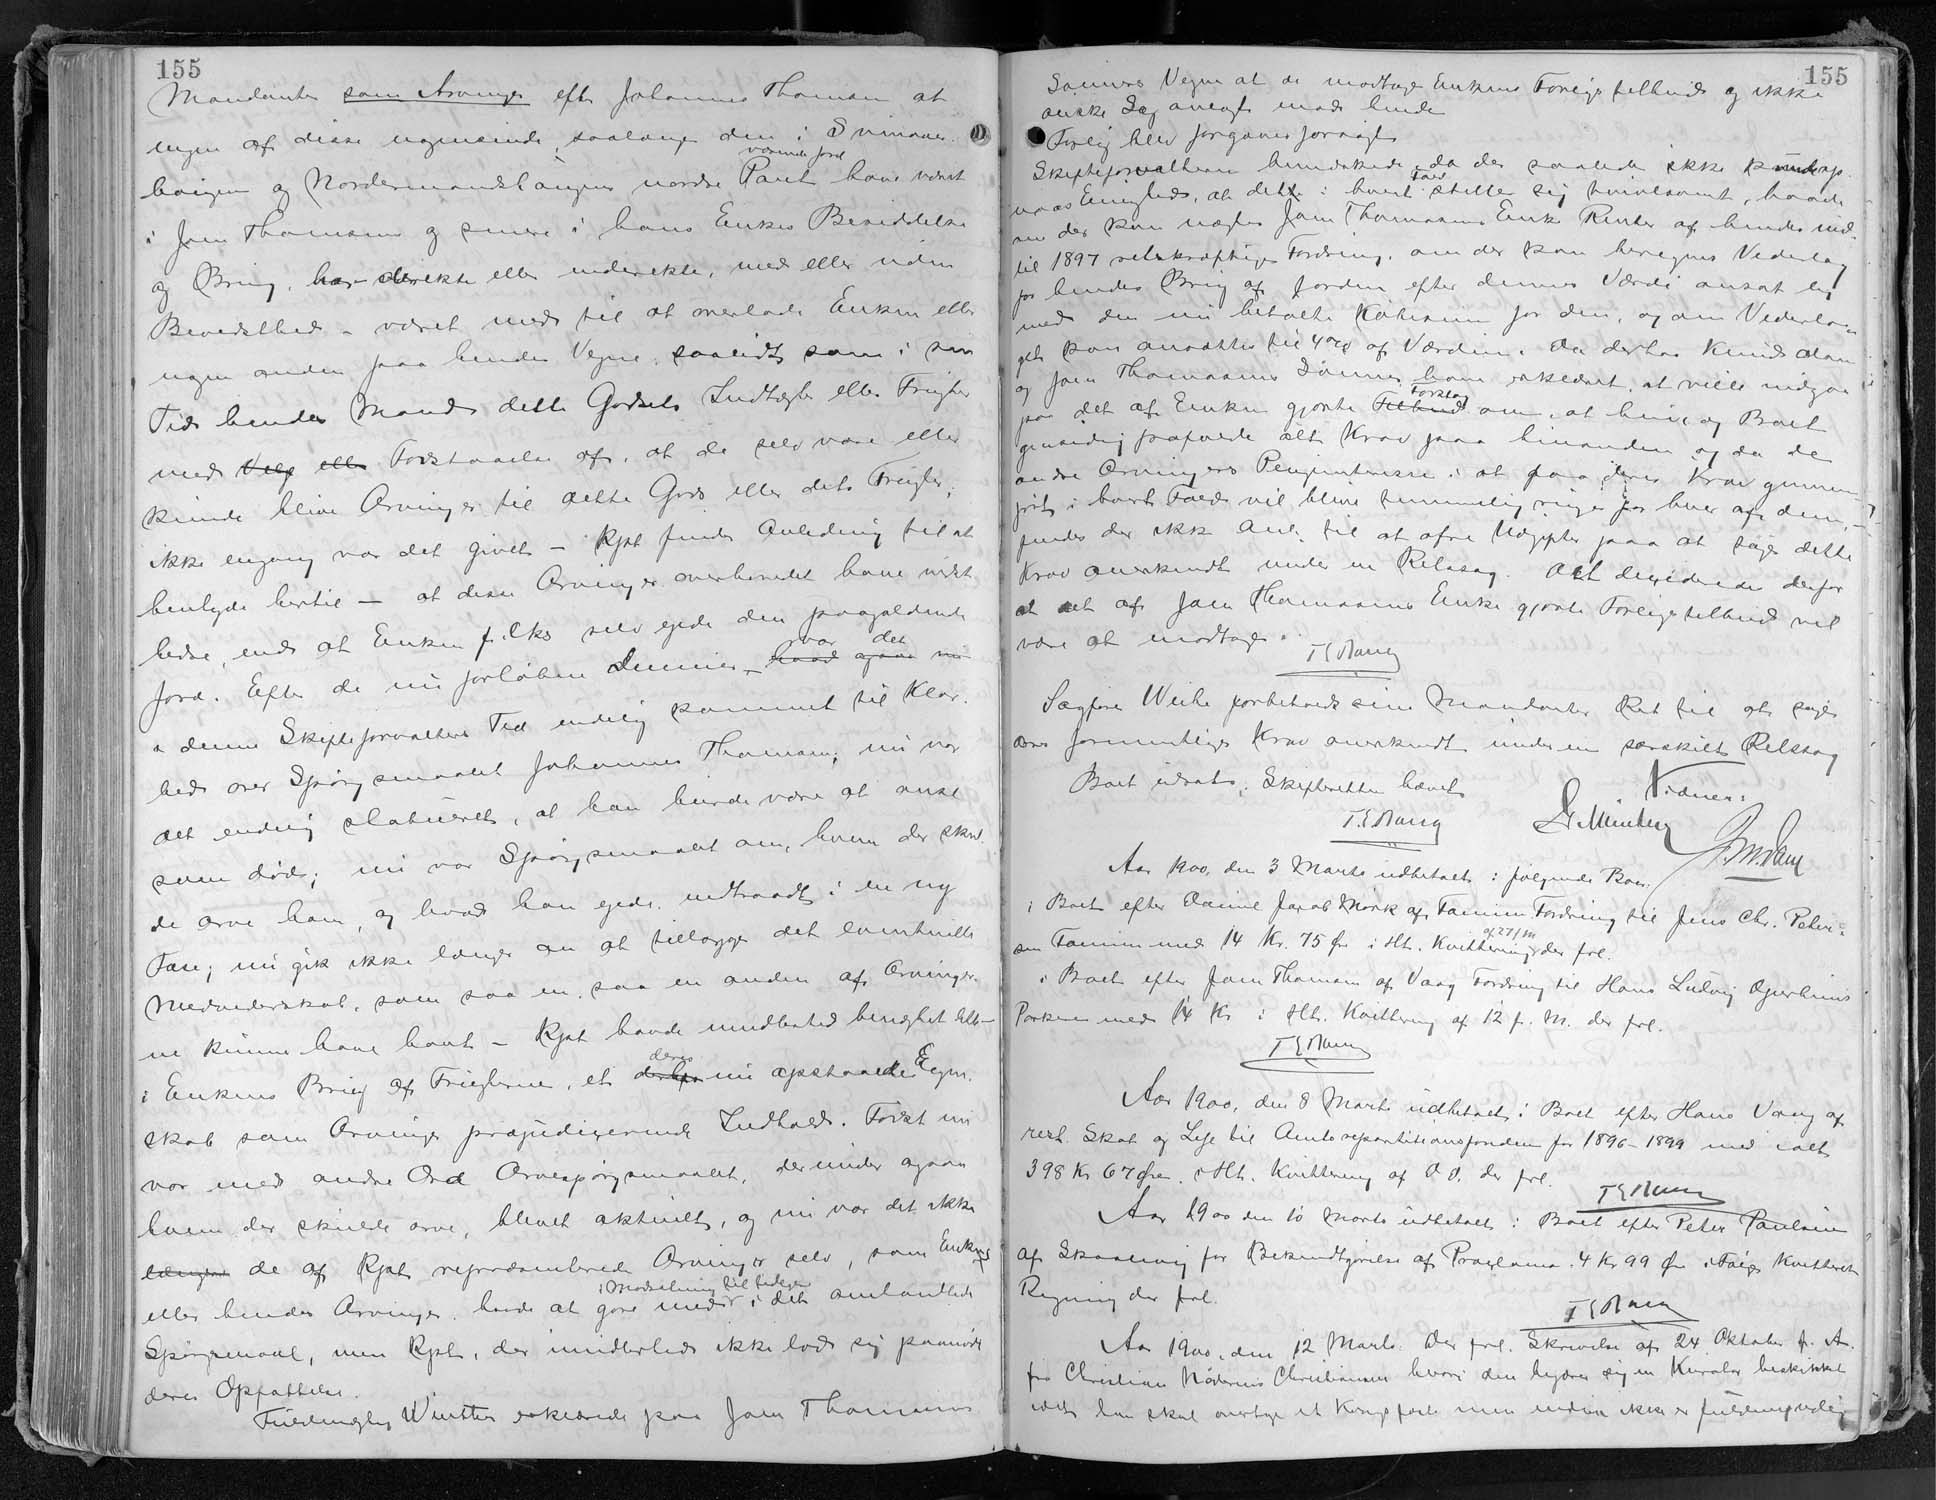 155
Mandanter som Arvinger efter Johannes Thomsen at
ingen af disse nogensinde, saalænge den i Svinaae-
haugen og Nordermandshaugens nordre Partværende Jord have været
i Joen Thomsens og senere i hans Enkes Besiddelse
og Brug, har direkte eller indirekte, med eller uden
Bevidsthed - været med til at overlade Enken eller
nogen anden paa hendes Vegne, saavidt som i sin
Tid hendes Mand dette Godsets Indtægter eller Frugter
med Vilje eller Forstaaelse af, at de selv vare eller
kunde blive Arvinger til dette Gods eller dets Frugter;
ikke engang var det givet - Rpt finder Anledning til at
henlyde hertil - at disse Arvinger overhovedet have vidst
bedre, end at Enken f. Eks selv ejede den paagældende
Jord. Efter de nu forløbne Decennier - var det
i denne Skifteforvalters Tid endelig kommet til Klar-
hed over Spørgsmaalet Johannes Thomsen; nu var
det endelig statueret, at han burde være at anse
som død; nu var Spørgsmaalet om, hvem der skul-
de arve ham, og hvad han ejede, indtraadt i en ny
Fase; nu gik ikke længer an at tillægge det eventuelle
Medviderskab, som saa en, saa en anden af Arvinger-
ne kunne have havt - Rpt havde imidlertid benægtet dette -
i Enkens Brug af Frugterne, et deres nu opstaaede Egen-
skab som Arvinger præjudicerende Indhold. Først nu
var med andre Ord Arvespørgsmaalet, derunder ogsaa
hvem der skulde arve, blevet aktuelt, og nu var det ikke
længer de af Rpt repræsenterede Arvinger selv, som Enken
eller hendes Arvinger havde at gøre med i Modsætning til tidligere i det omhandlede
Spørgsmaal, men Rpt, der imidlertid ikke lod sig paanøde
deres Opfattelse.
Fuldmægtig Winther erklærede paa Joen Thomsens
155
Sønners Vegne at de modtage Enkens Forligstilbud og ikke
ønske Sag anlagt mod hende
Forlig blev forgæves forsøgt
Skifteforvalteren bemærkede, da der saaledes ikke kunde op-
naas Enighed, at det i hvert Fald stiller sig tvivlsomt, baade
om der kan nægtes Joen Thomsens Enke Renter af hendes ind-
til 1897 retskraftige Fordring, om der kan beregnes Vederlag
for hendes Brug af Jorden efter dennes Værdi ansat lig
med den nu betalte Købesum for den, og om Vederla-
get kan ansættes til 4% af Værdien. Da derhos Knud Adam
og Joen Thomsens Sønner have erklæret, at ville indgaa
paa det af Enken gjorte Forslag om, at hun og Boet
gensidig frafalde alt Krav paa hinanden og da de
andre Arvingers Pengeinteresse i at faa deres Krav gennem-
ført i hvert Fald vil blive temmelig ringe for hver af dem,
findes der ikke Anl. til at ofre Udgifter paa at søge dette
Krav anerkendt under en Retssag. Det decideredes derfor
at det af Joen Thomsens Enke gjorte Forligstilbud vil
være at modtage.
Sagfører Weihe forbeholdt sine Mandanter Ret til at søge
deres formentlige Krav anerkendt under en særskilt Retssag
Boet udsat; Skifteretten hævet
Vidner:
Aar 1900, den 3 Marts udbetalt i følgende Boer:
i Boet efter Daniel Jacob Mørk af Famien Fordring til Jens Chr. Peter-
sen Famien med 14 Kr. 75 Øre i Hh. Kvittering af 27 f M der frl.
i Boet efter Joen Thomsen af Vaag Fordring til Hans Ludvig Djurhuus
Porkere med 14 Kr i Hh. Kvittering af 12 f. M. der frl.
Aar 1900, den 8 Marts udbetalt i Boet efter Hans Vang af
rest. Skat og Leje til Amtsrepartitionsfonden for 1896-1899 med ialt
398 Kr 67 Øre. i Hh. Kvittering af D D. der frl.
Aar 1900 den 10 Marts udbetalt i Boet efter Peter Paulsen
af Skaalevig for Bekendtgørelse af Proclama 4 Kr 99 Øre i Følge Kvitteret
Regning der frl.
Aar 1900, den 12 Marts. Der frl. Skrivelse af 24 Oktober f. A.
fra Christian Christiansen hvori den begærer sig en Kurator beskikket
idet han skal overtage et Kongsfæste men endnu ikke er fuldmyndig